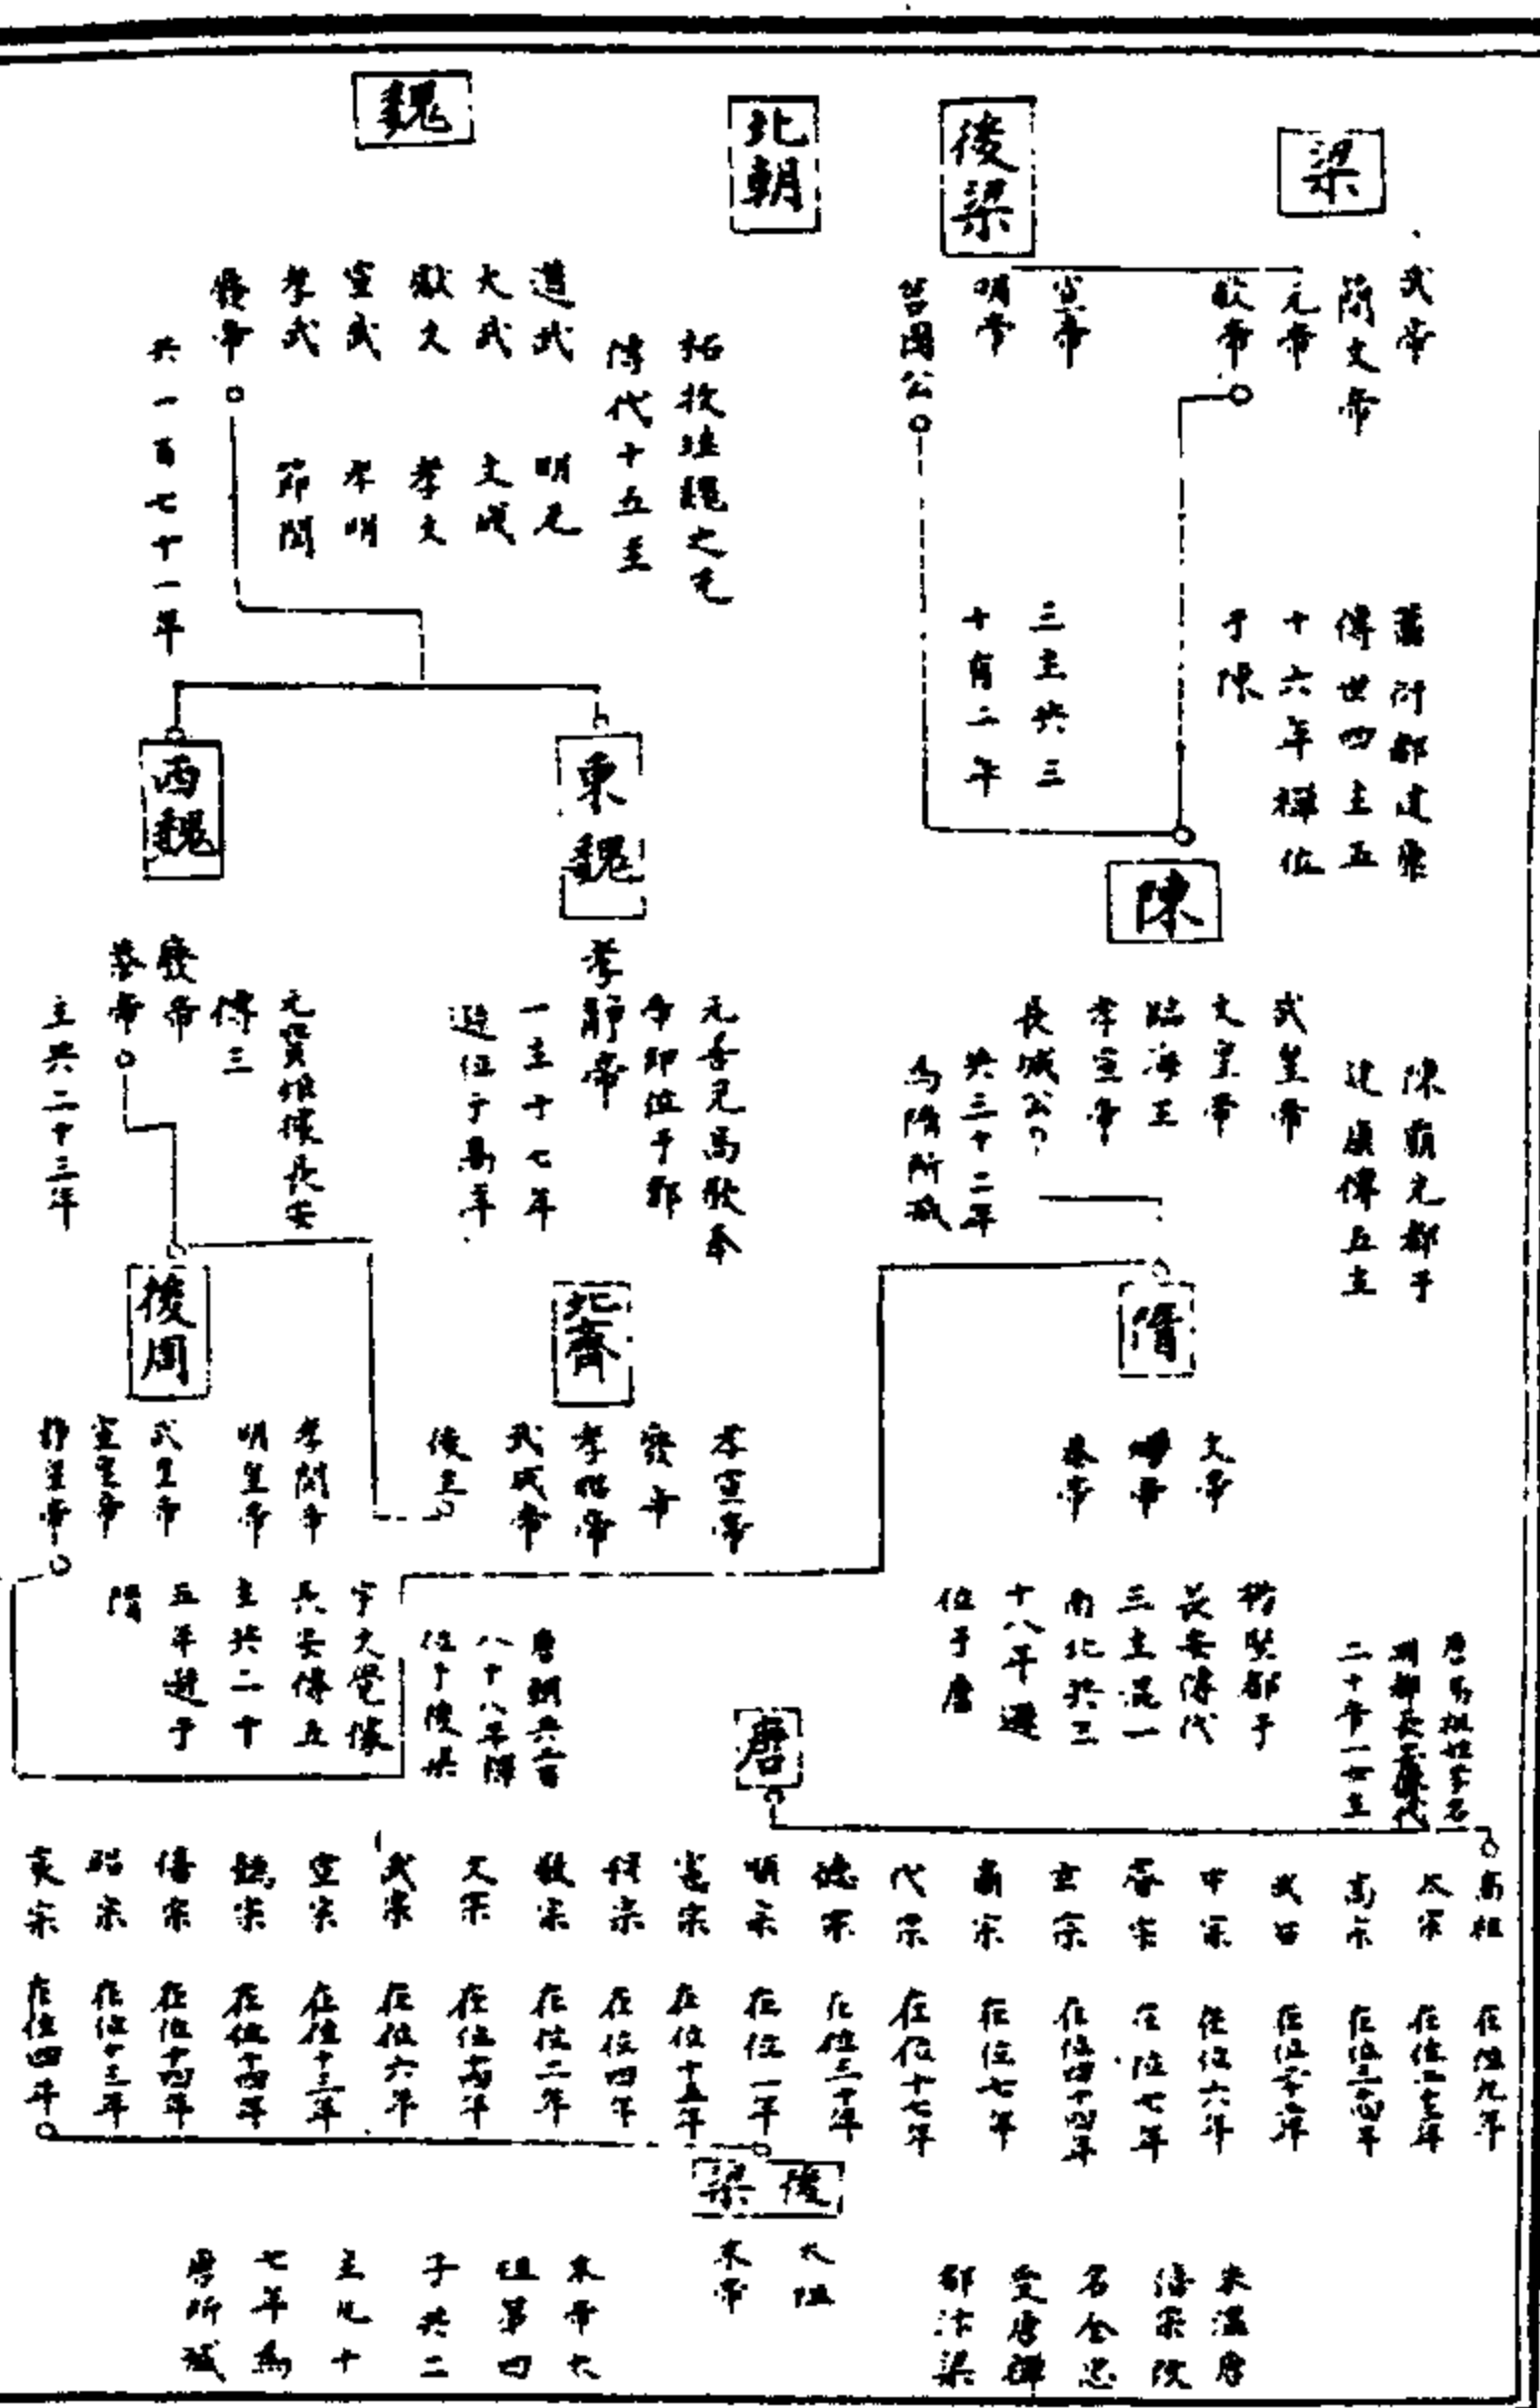 梁
武帝
簡文帝
元帝
敬帝
蕭衍都建康
傳世四主五
十六年禪位
于陳
後梁
宣帝
明帝
莒國公
三主共三
十有二年
北朝
魏
拓拔珪魏之先
傳代十五主
道武
明元
太武
文成
獻文
孝文
宣武
孝明
孝武
節閔
脩帝
共一百七十一年
陳
陳霸先都于
建康傳五主
武皇帝
文皇帝
臨海王
孝宣帝
長城公
共三十二年
為隋所滅
東魏
元善見高歡奉
帝即位于鄴
孝靜帝
一主十七年
遜位于
西魏
元寶炬據長安
傳三
廢帝
恭帝
主共二十三年
隋
文帝
煬帝
恭帝
楊堅都于
長安傳代
三主混一
南北共三
十八年遜
位于唐
北齊
孝宣帝
廢帝
孝昭帝
武成帝
後主
後周
孝閔帝
明皇帝
武皇帝
宣皇帝
靜皇帝
宇文覺據
長安傳五
主共二十
五年遜于
隋
唐
唐高祖姓李名
淵都長安傳代
二十帝一女主
唐朝共二百
八十八年禪
位于後梁
高祖 在位九年
太宗 在位二十三年
高宗 在位三十四年
武后
中宗 在位六年
睿宗 在位七年
玄宗 在位四十四年
肅宗 在位七年
代宗 在位十七年
德宗
順宗 在位一年
憲宗 在位十五年
穆宗 在位四年
敬宗 在位二年
文宗 在位十四年
武宗 在位六年
宣宗 在位十三年
懿宗 在位十四年
僖宗 在位十四年
昭宗 在位十五年
哀宗 在位四年
後梁
太祖
末帝
朱溫唐
僖宗改
名全忠
受唐禪
都汴梁
末帝太
祖第四
子共二
主凡十
七年為
唐所滅